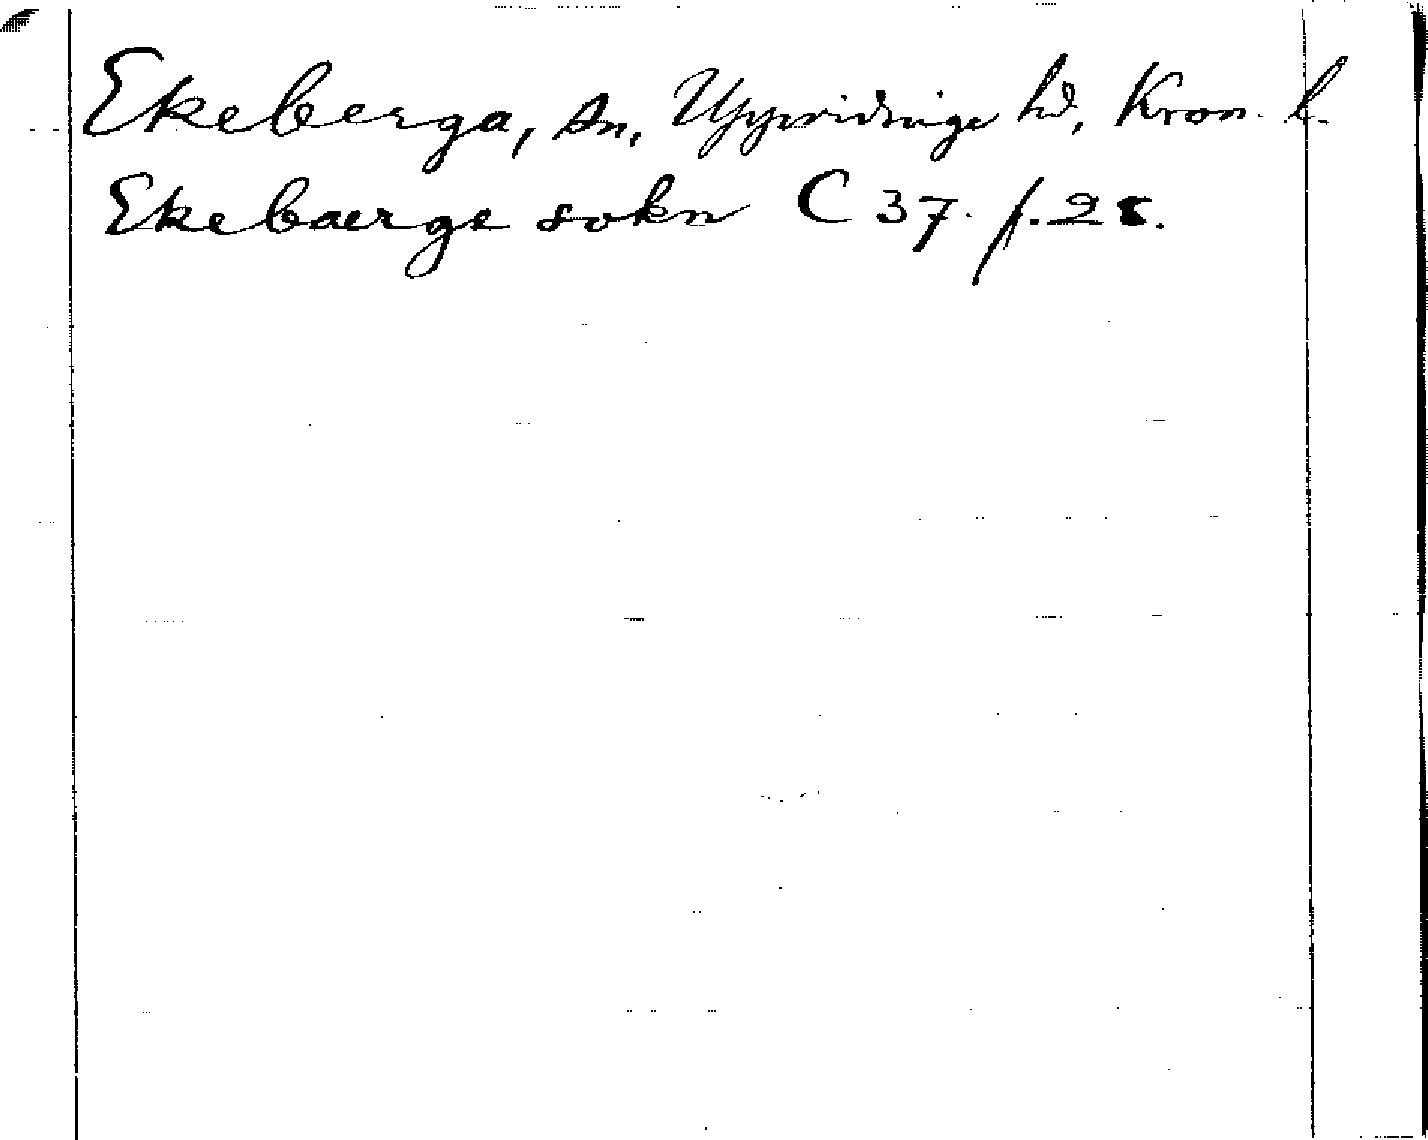 Ekeberga, sn, Uppvidinge hd, Kron. l.
Ekebaerge sokn C 37. f. 28.